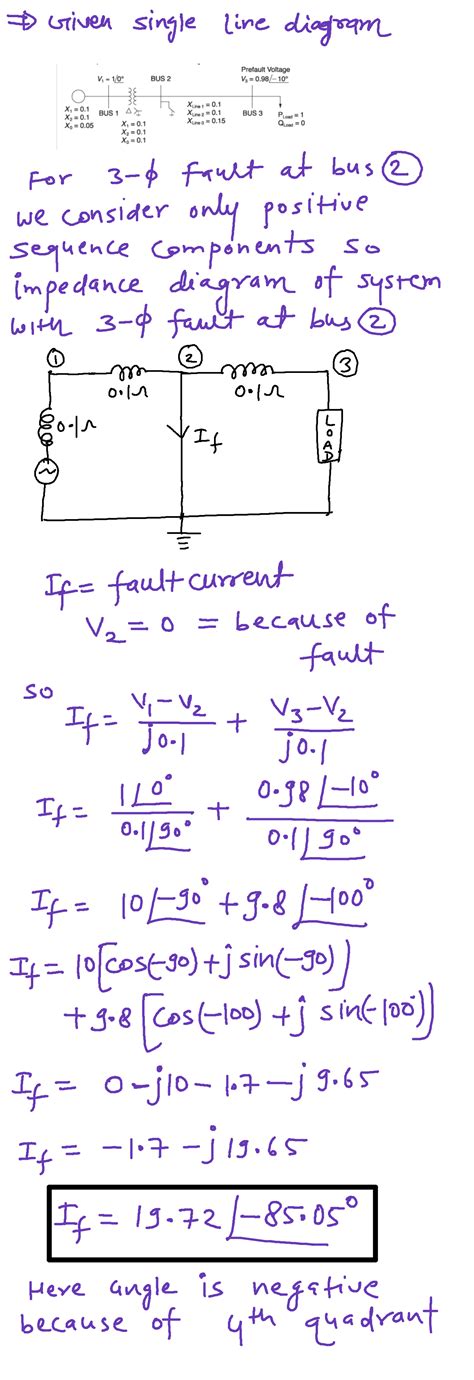 ⇒ Given single line diagram
Prefault Voltage
V₁ = 1/0° BUS 2 V₃ = 0.98/−10°
X₁ = 0.1
X₂ = 0.1
X₀ = 0.05
BUS 1
Δ
X₁ = 0.1
X₂ = 0.1
X₀ = 0.1
XLine 1 = 0.1
XLine 2 = 0.1
XLine 0 = 0.15
BUS 3
PLoad = 1
QLoad = 0
For 3-ϕ fault at bus ②
we consider only positive
sequence components so
impedance diagram of system
with 3-ϕ fault at bus ②
① ② ③
0.1Ω 0.1Ω
0.1Ω
If
LOAD
If = fault current
V₂ = 0 = because of
fault
so
If = V₁-V₂/j0.1 + V₃-V₂/j0.1
If = 1∠0°/0.1∠90° + 0.98∠-10°/0.1∠90°
If = 10∠-90° + 9.8∠-100°
If = 10[cos(-90)+j sin(-90)]
+9.8[cos(-100)+j sin(-100)]
If = 0-j10-1.7-j9.65
If = -1.7-j19.65
If = 19.72∠-85.05°
Here angle is negative
because of 4th quadrant